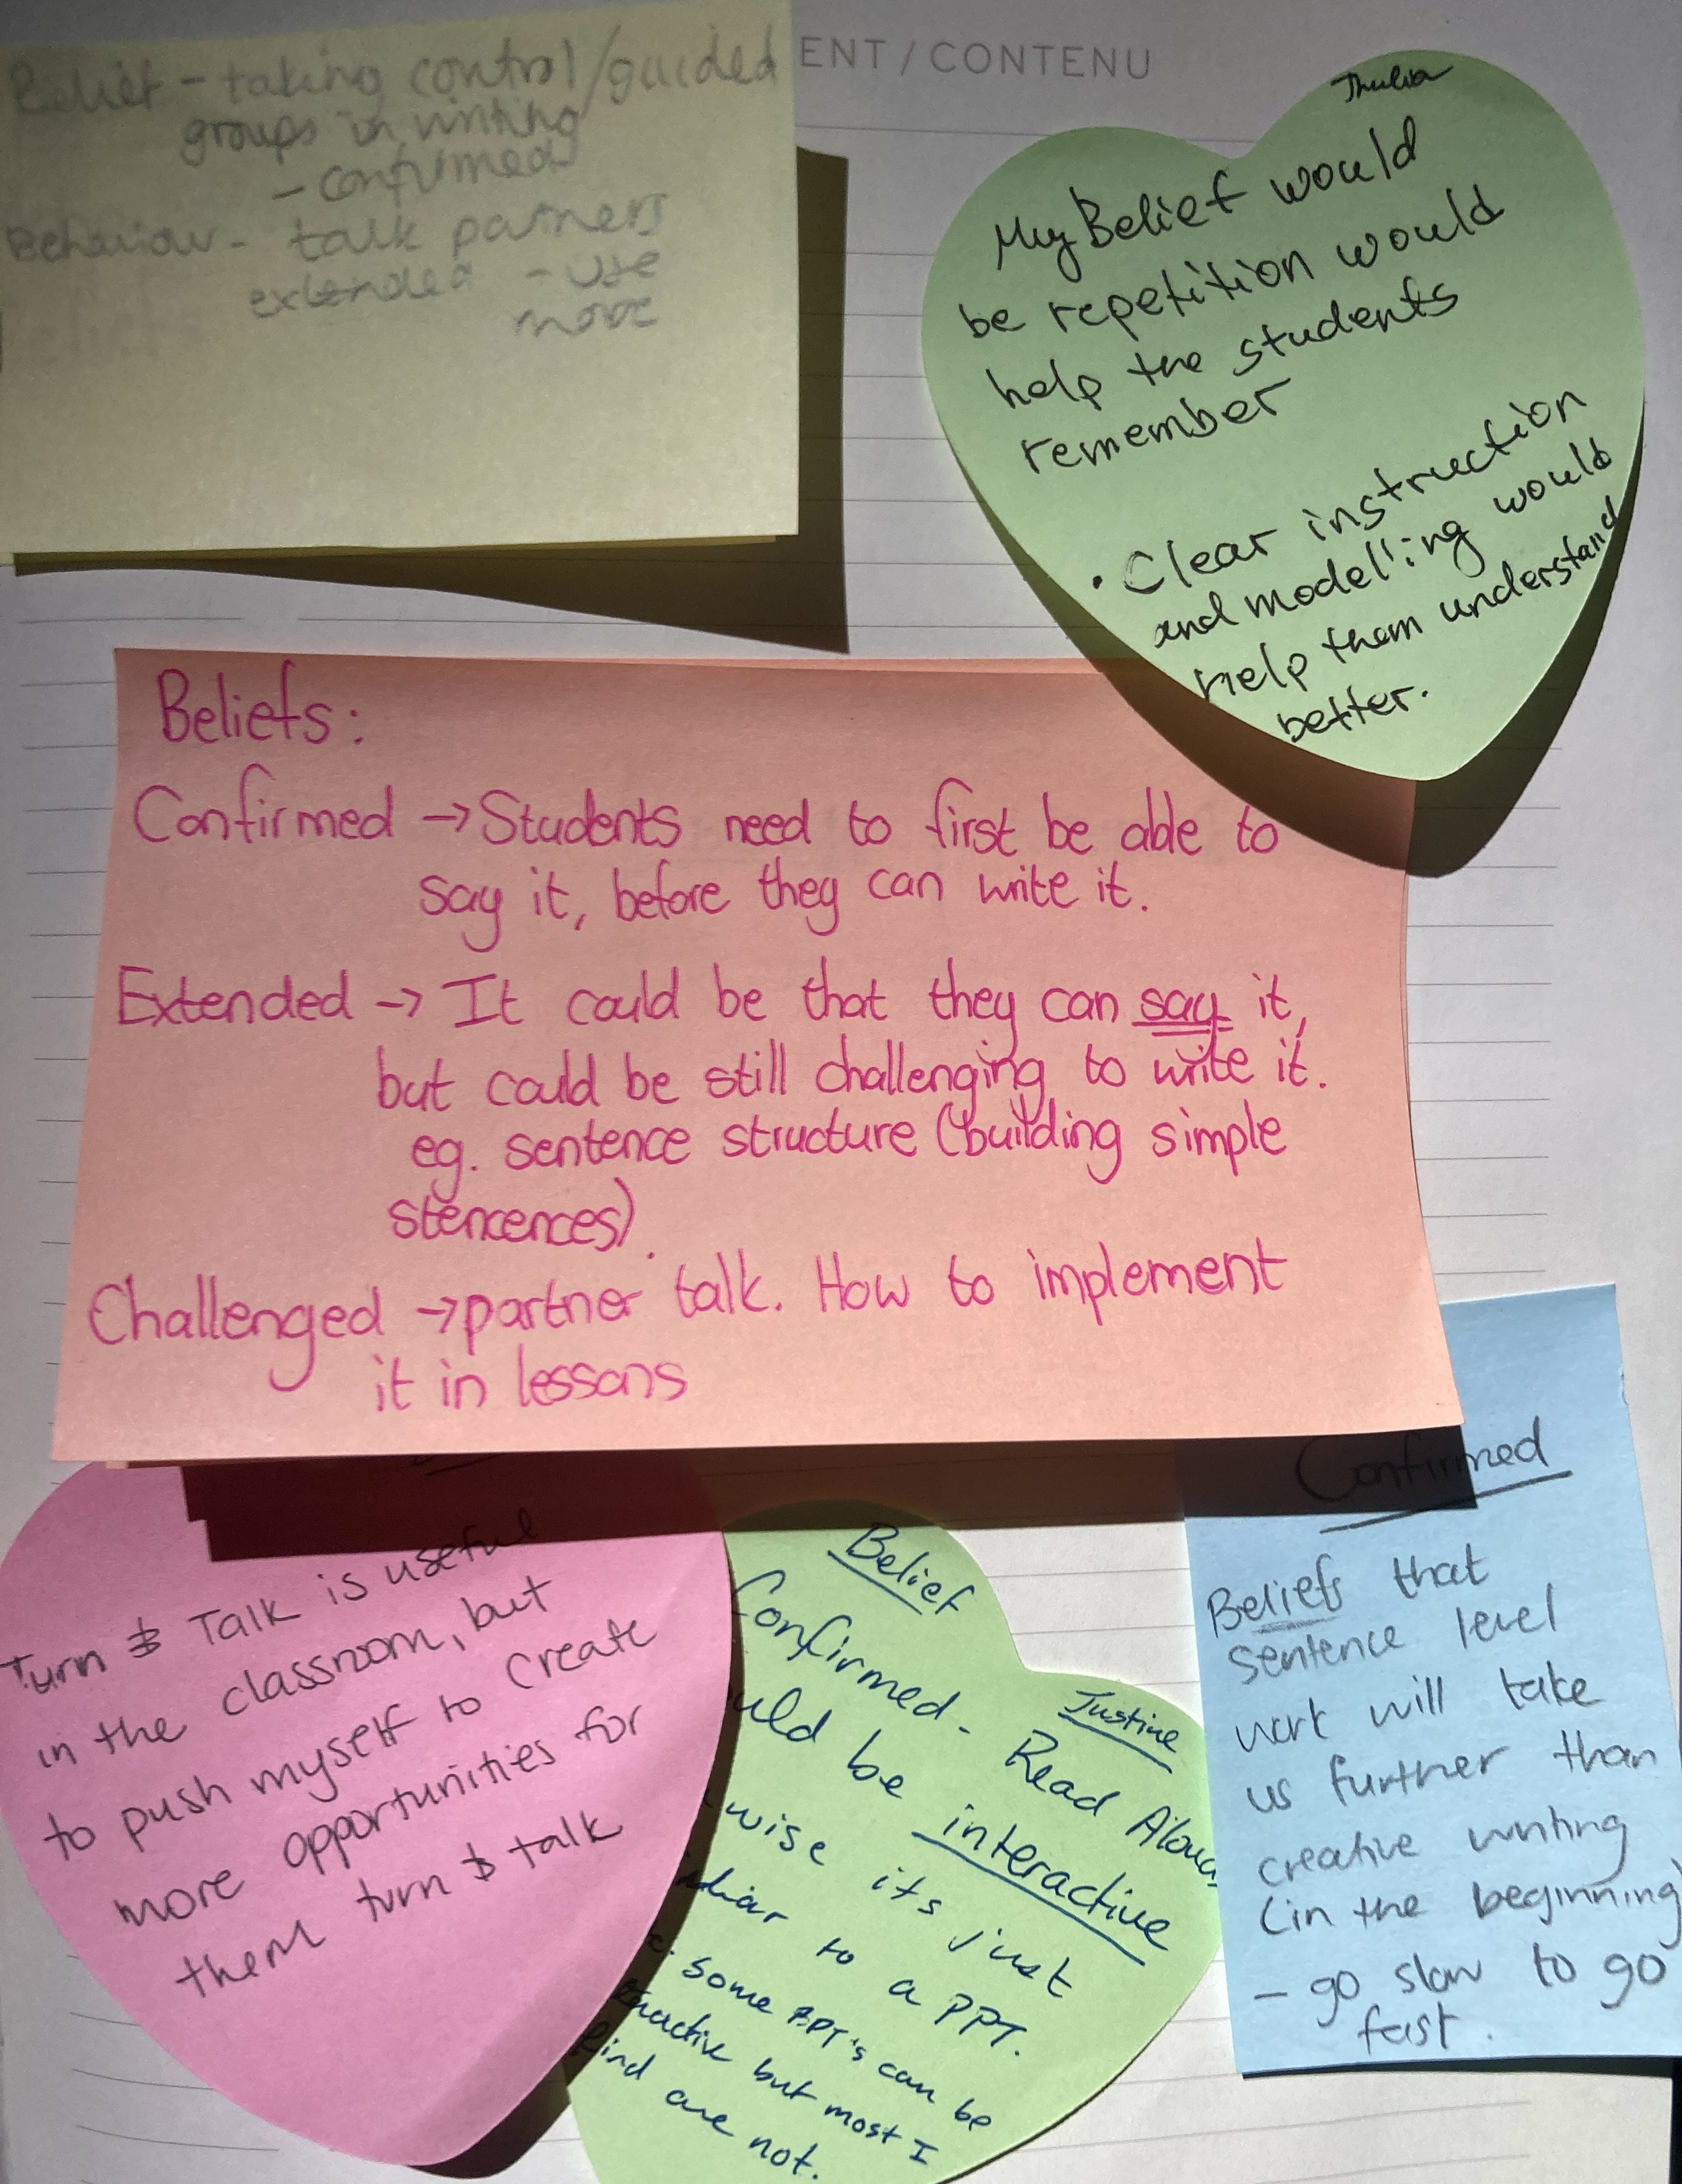 Belief - taking control/guided
groups in writing
- confirmed
Behaviour - talk partners
extended - use
more
ENT / CONTENU
Thulia
My Belief would
be repetition would
help the students
remember
• Clear instruction
and modelling would
help them understand
better.
Beliefs:
Confirmed → Students need to first be able to
say it, before they can write it.
Extended → It could be that they can say it,
but could be still challenging to write it.
eg. sentence structure (building simple
stencences).
Challenged → partner talk. How to implement
it in lessons
Turn & Talk is useful
in the classroom, but
to push myself to create
more opportunities for
them turn & talk
Belief
Justine
Confirmed - Read Aloud
uld be interactive
wise it's just
to a PPT.
Some PPT's can be
but most I
find are not.
Confirmed
Beliefs that
sentence level
work will take
us further than
creative writing
(in the beginning)
- go slow to go
fast.